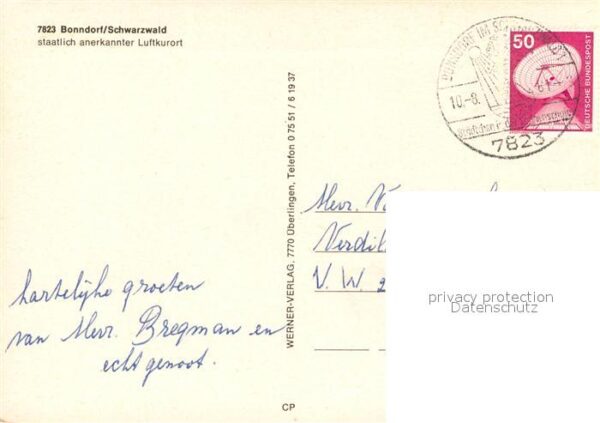 7823 Bonndorf/Schwarzwald
staatlich anerkannter Luftkurort
BONNDORF IM SCHWARZWALD
10.-8.
7823
50
DEUTSCHE BUNDESPOST
WERNER-VERLAG, 7770 Überlingen, Telefon 0 75 51 / 6 19 37
Mevr. V
Verdi
V. W. 2
privacy protection
Datenschutz
hartelijke groeten
van Mevr. Bregman en
echtgenoot.
CP